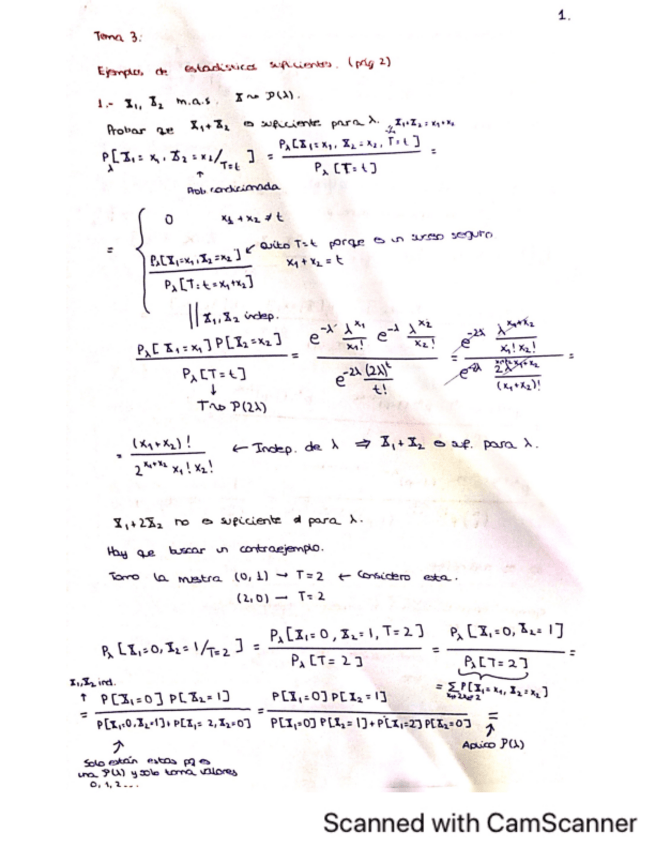 1.
Tema 3:
Ejemplos de estadísticos suficientes. (pág 2)
1.- X₁, X₂ m.a.s. X ~ P(λ).
Probar que X₁+X₂ es suficiente para λ. X₁+X₂ = x₁+x₂
P_λ[X₁ = x₁, X₂ = x₂ / T=t] = P_λ[X₁=x₁, X₂=x₂, T=t] / P_λ[T=t] =
↑
Prob. condicionada
= { 0 x₁ + x₂ ≠ t
P_λ[X₁=x₁, X₂=x₂] / P_λ[T=t=x₁+x₂] ← Quito T=t porque es un suceso seguro
x₁ + x₂ = t
|| X₁, X₂ indep.
P_λ[X₁ = x₁] P[X₂=x₂] / P_λ[T=t] = e^-λ λ^x₁/x₁! e^-λ λ^x₂/x₂! / e^-2λ (2λ)^t/t! = e^-2λ λ^x₁+x₂ / x₁! x₂! / e^-2λ 2^x₁+x₂ λ^x₁+x₂ / (x₁+x₂)! =
↓
T ~ P(2λ)
= (x₁+x₂)! / 2^x₁+x₂ x₁! x₂! ← Indep. de λ ⇒ X₁+X₂ es suf. para λ.
X₁+2X₂ no es suficiente para λ.
Hay que buscar un contraejemplo.
Tomo la mestra (0,1) → T=2 ← Considero esta.
(2,0) — T=2
P_λ[X₁=0, X₂=1/T=2] = P_λ[X₁=0, X₂=1, T=2] / P_λ[T=2] = P_λ[X₁=0, X₂=1] / P_λ[T=2] =
X₁, X₂ ind.
= P[X₁=0] P[X₂=1] / P[X₁=0, X₂=1] + P[X₁=2, X₂=0] = P[X₁=0] P[X₂=1] / P[X₁=0] P[X₂=1] + P[X₁=2] P[X₂=0] =
= Σ P[X₁=x₁, X₂=x₂]
↑
Aplico P(λ)
Solo están estas pq es
una P(λ) y solo toma valores
0, 1, 2...
Scanned with CamScanner